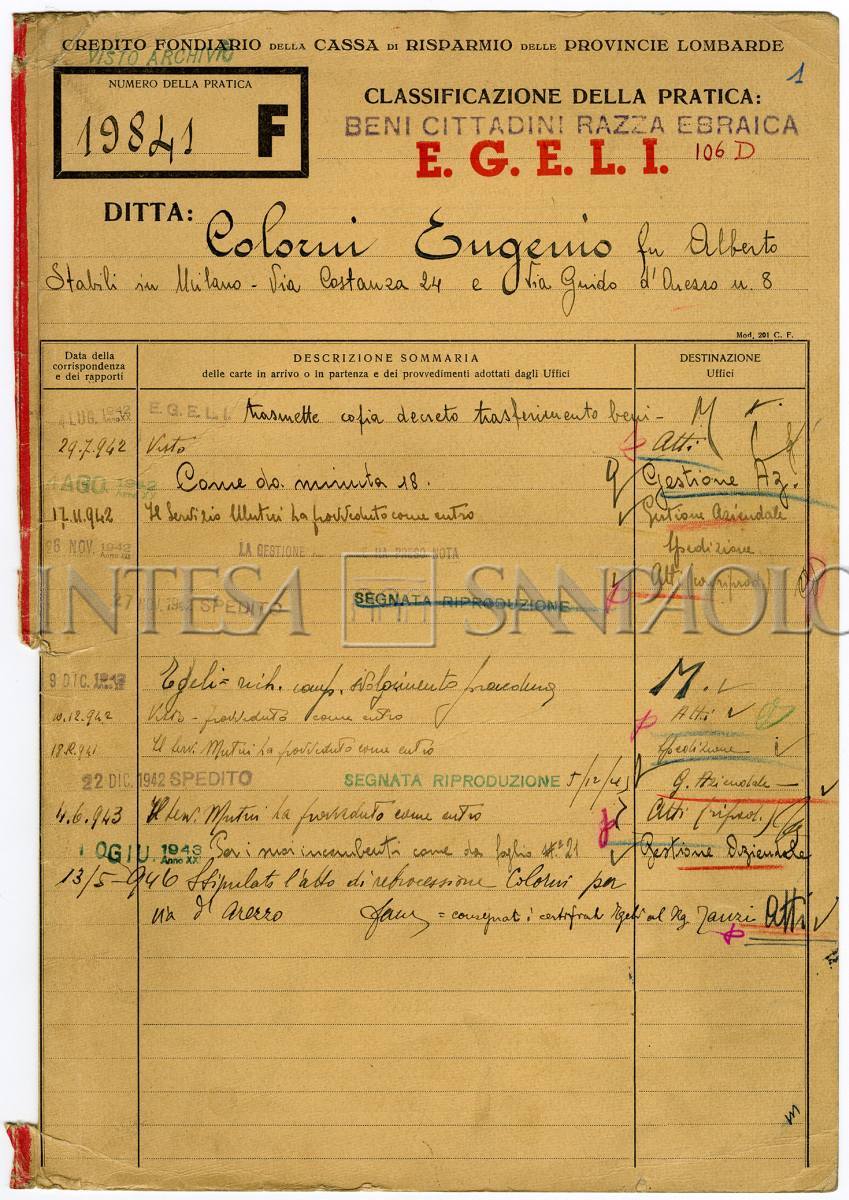 CREDITO FONDIARIO DELLA CASSA DI RISPARMIO DELLE PROVINCIE LOMBARDE
VISTO ARCHIVIO
NUMERO DELLA PRATICA
19841 F
1
CLASSIFICAZIONE DELLA PRATICA:
BENI CITTADINI RAZZA EBRAICA
E. G. E. L. I. 106 D
DITTA: Colorni Eugenio fu Alberto
Stabili in Milano - Via Costanza 24 e Via Guido d'Arezzo n. 8
Mod. 201 C. F.
Data della corrispondenza e dei rapporti
DESCRIZIONE SOMMARIA
delle carte in arrivo o in partenza e dei provvedimenti adottati dagli Uffici
DESTINAZIONE
Uffici
4 LUG. 1942 Anno XX E.G.E.L.I. trasmette copia decreto trasferimento beni - M
29.7.942 Visto Atti
AGO 1942 Anno XX Come da minuta 18. Gestione Az.
17.11.942 Il Servizio Mutui ha provveduto come entro Gestione Aziendale
26 NOV. 1942 LA GESTIONE HA PRESO NOTA Spedizione
Atti
27 NOV. 1942 SPEDITO SEGNATA RIPRODUZIONE
INTESA SANPAOLO
9 DIC. 1942 Egeli = rich. comp. svolgimento procedura M.
10.12.942 Visto - provveduto come entro Atti
Il Serv. Mutui ha provveduto come entro Spedizione
22 DIC. 1942 SPEDITO SEGNATA RIPRODUZIONE G. Aziendale
4.6.943 Il Serv. Mutui ha provveduto come entro Atti (riprod.)
10 GIU. 1943 Anno XXI Per i suoi incombenti come da foglio n° 21 Gestione Aziendale
13/5-946 Stipulato l'atto di retrocessione Colorni per
via d'Arezzo = consegnati i certificati Egeli al Rg. Atti